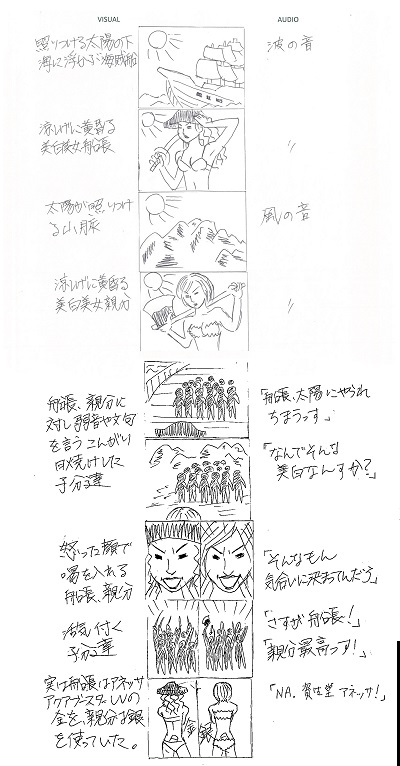 VISUAL
AUDIO
照りつける太陽の下
海に浮かぶ海賊船
波の音
涼しげに黄昏る
美白美女船長
〃
太陽が照りつけ
る山脈
風の音
涼しげに黄昏る
美白美女親分
〃
船長、親分に
対し弱音や文句
を言うこんがり
日焼けした
子分達
「船長、太陽にやられ
ちまうっす」
「なんでそんな
美白なんすか?」
怒った顔で
喝を入れる
船長、親分
「そんなもん
気合いに決まってんだろ」
活気付く
子分達
「さすが船長!」
「親分最高っす!」
実は船長はアネッサ
アクアブースターUVの
金を、親分は銀
を使っていた。
「NA. 資生堂 アネッサ!」